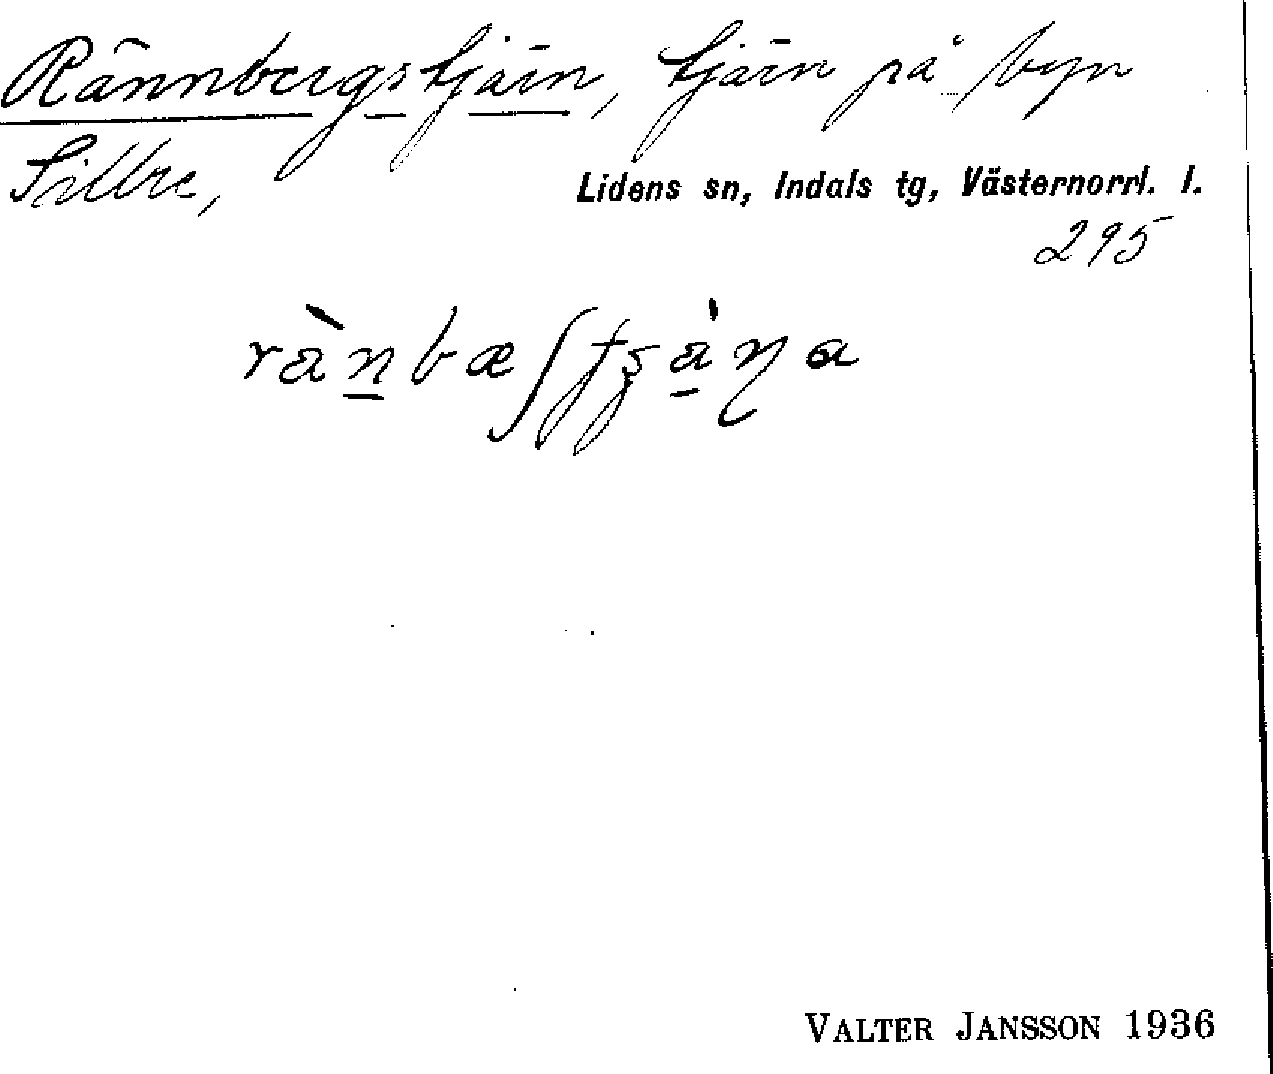 Rännbergstjärn, tjärn på byn
Sillre,
Lidens sn, Indals tg, Västernorrl. l.
295
VALTER JANSSON 1936